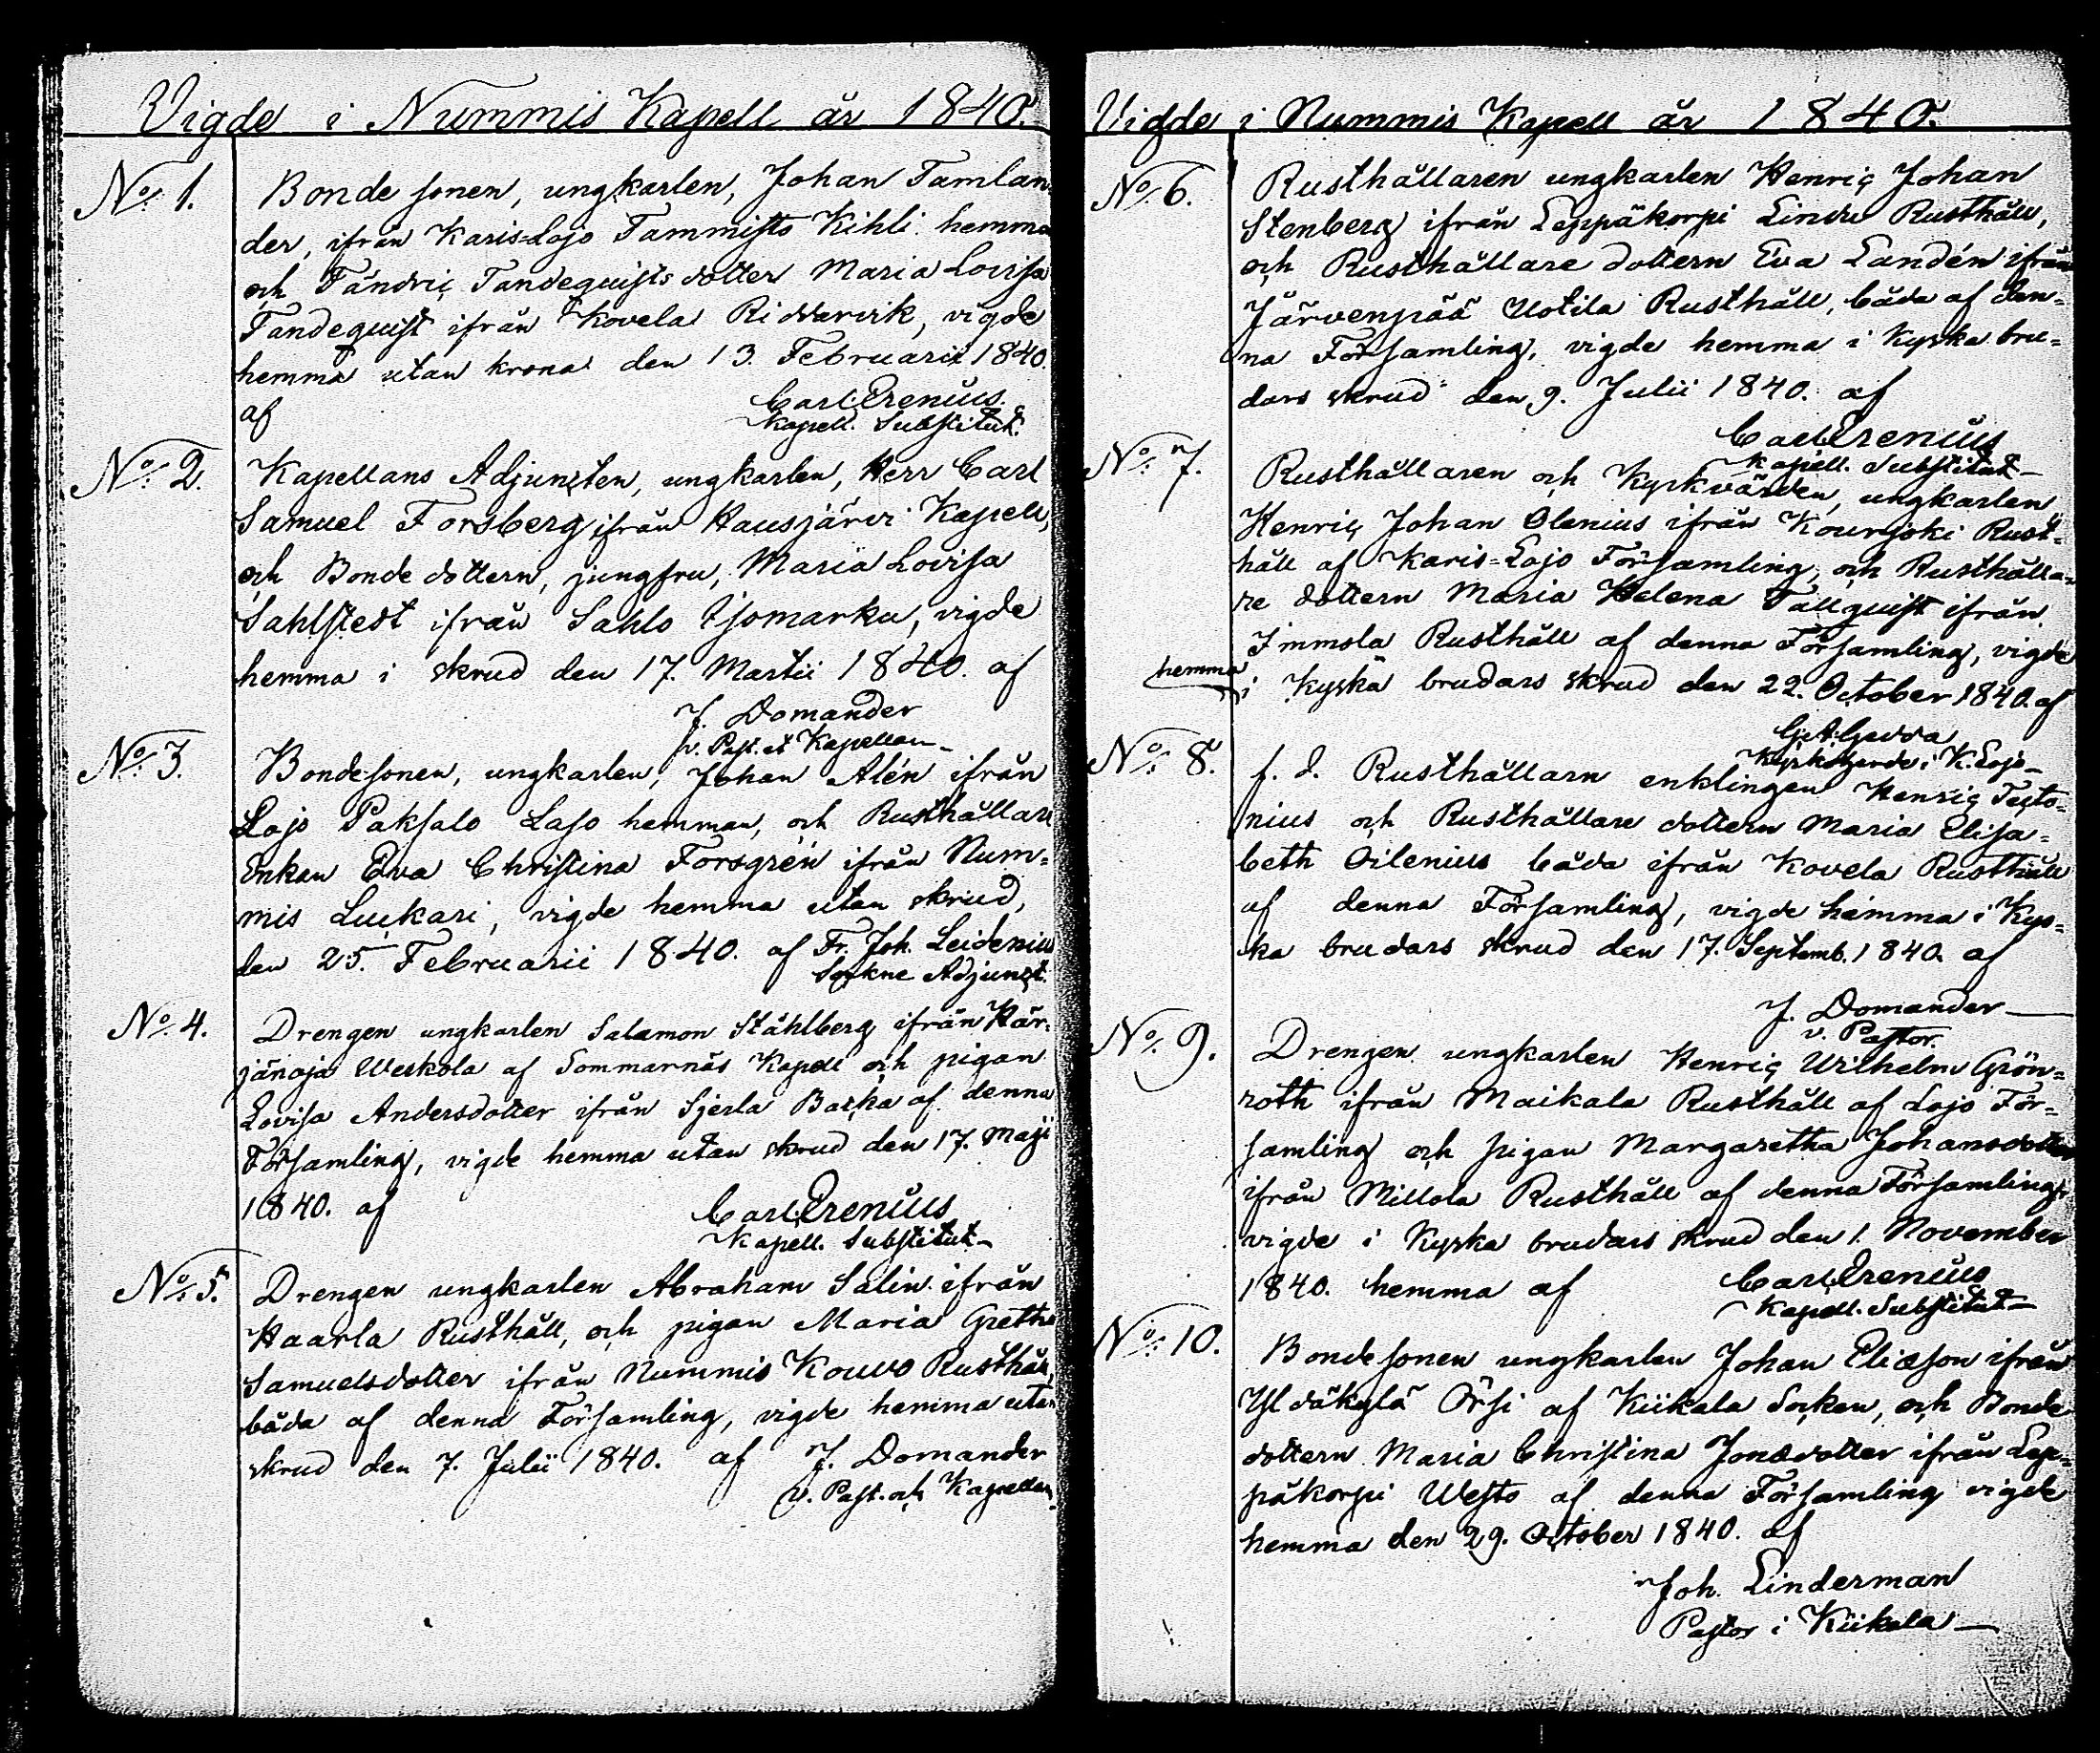 Vigde i Nummis Kapell år 1840.
No. 1.
Bonde sonen, ungkarlen, Johan Tamlan
der, ifrån Karis-Lojo Tammisto Kihli hemma
och Fändric Tandequists dotter Maria Lovisa
Tandequist ifrån Kovela Ridderirk, vigde
hemma utan krona den 13. Februarii 1840.
af Carl Prenius.
Kapell. Substitut.
No. 2.
Kapellans Adjuncten, ungkarlen, Herr Carl
Samuel Forsberg ifrån Hausjärvi Kapell,
och Bonde dottern, jungfru, Maria Lovisa
Sahlstedt ifrån Sahlo Ojomarku, vigde
hemma i skrud den 17. Martii 1840. af
J. Domander
v. Past. et Kapellan
No. 3.
Bondesonen, ungkarlen, Johan Alén ifrån
Lojo Paksalo Laso hemman, och Rusthållare
Enkan Eva Christina Forsgrén ifrån Num=
mis Luckari, vigde hemma utan skrud,
den 25. Februarii 1840. af Fr. Joh. Leidenius
Sockne Adjunct.
No. 4.
Drengen ungkarlen Salamon Ståhlberg ifrån Här=
jänoja Weskola af Sommarnäs Kapell och pigan
Lovisa Andersdotter ifrån Sjerla Backa af denna
Församling, vigde hemma utan skrud den 17. Maji
1840. af Carl Prenius
Kapell. Substitut
No. 5.
Drengen ungkarlen Abraham Salin ifrån
Haarla Rusthåll, och pigan Maria Gretha
Samuelsdotter ifrån Nummis Kouvo Rusthåll,
båda af denna Församling, vigde hemma utan
skrud den 7. Julii 1840. af J. Domander
v. Past. och Kapellan
Vigde i Nummis Kapell år 1840.
No. 6.
Rusthållaren ungkarlen Henric Johan
Stenberg ifrån Leppäkorpi Lindu Rusthåll,
och Rusthållare dottern Eva Landén ifrån
Järvenpää Uotila Rusthåll, båda af den=
na Församling, vigde hemma i Kyska bru=
dars skrud den 9. Julii 1840. af
Carl Prenius
Kapell. Substitut
No. 7.
Rusthållaren och Kyrkvärden, ungkarlen
Henric Johan Olenius ifrån Kourjoki Rust=
håll af Karis=Lojo Församling, och Rusthålla=
re dottern Maria Helena Tallquist ifrån
Immola Rusthåll af denna Församling, vigde
hemma i Kyska brudars skrud den 22. October 1840. af
G. A. Gedda
Kyrkoherde i K. Lojo
No. 8.
f. d. Rusthållarn enklingen Henric Tecto=
nius och Rusthållare dottern Maria Elisa=
beth Oilenius båda ifrån Kovela Rusthåll
af denna Församling, vigde hemma i Kys=
ka brudars skrud den 17. Septemb. 1840. af
J. Domander
v. Pastor.
No. 9.
Drengen ungkarlen Henric Wilhelm Grön=
roth ifrån Maikala Rusthåll af Lojo För=
samling och pigan Margaretha Johansdotter
ifrån Millola Rusthåll af denna Församling
vigde i Kyska brudars skrud den 1. November
1840. hemma af Carl Prenius
Kapell. Substitut
No. 10.
Bondesonen ungkarlen Johan Eliæson ifrån
Yldäkylä Örsi af Kiikala Socken, och Bonde
dottern Maria Christina Jonædotter ifrån Lep=
päkorpi Westo af denna Församling vigde
hemma den 29. October 1840. af
Joh. Linderman
Pastor i Kiikala